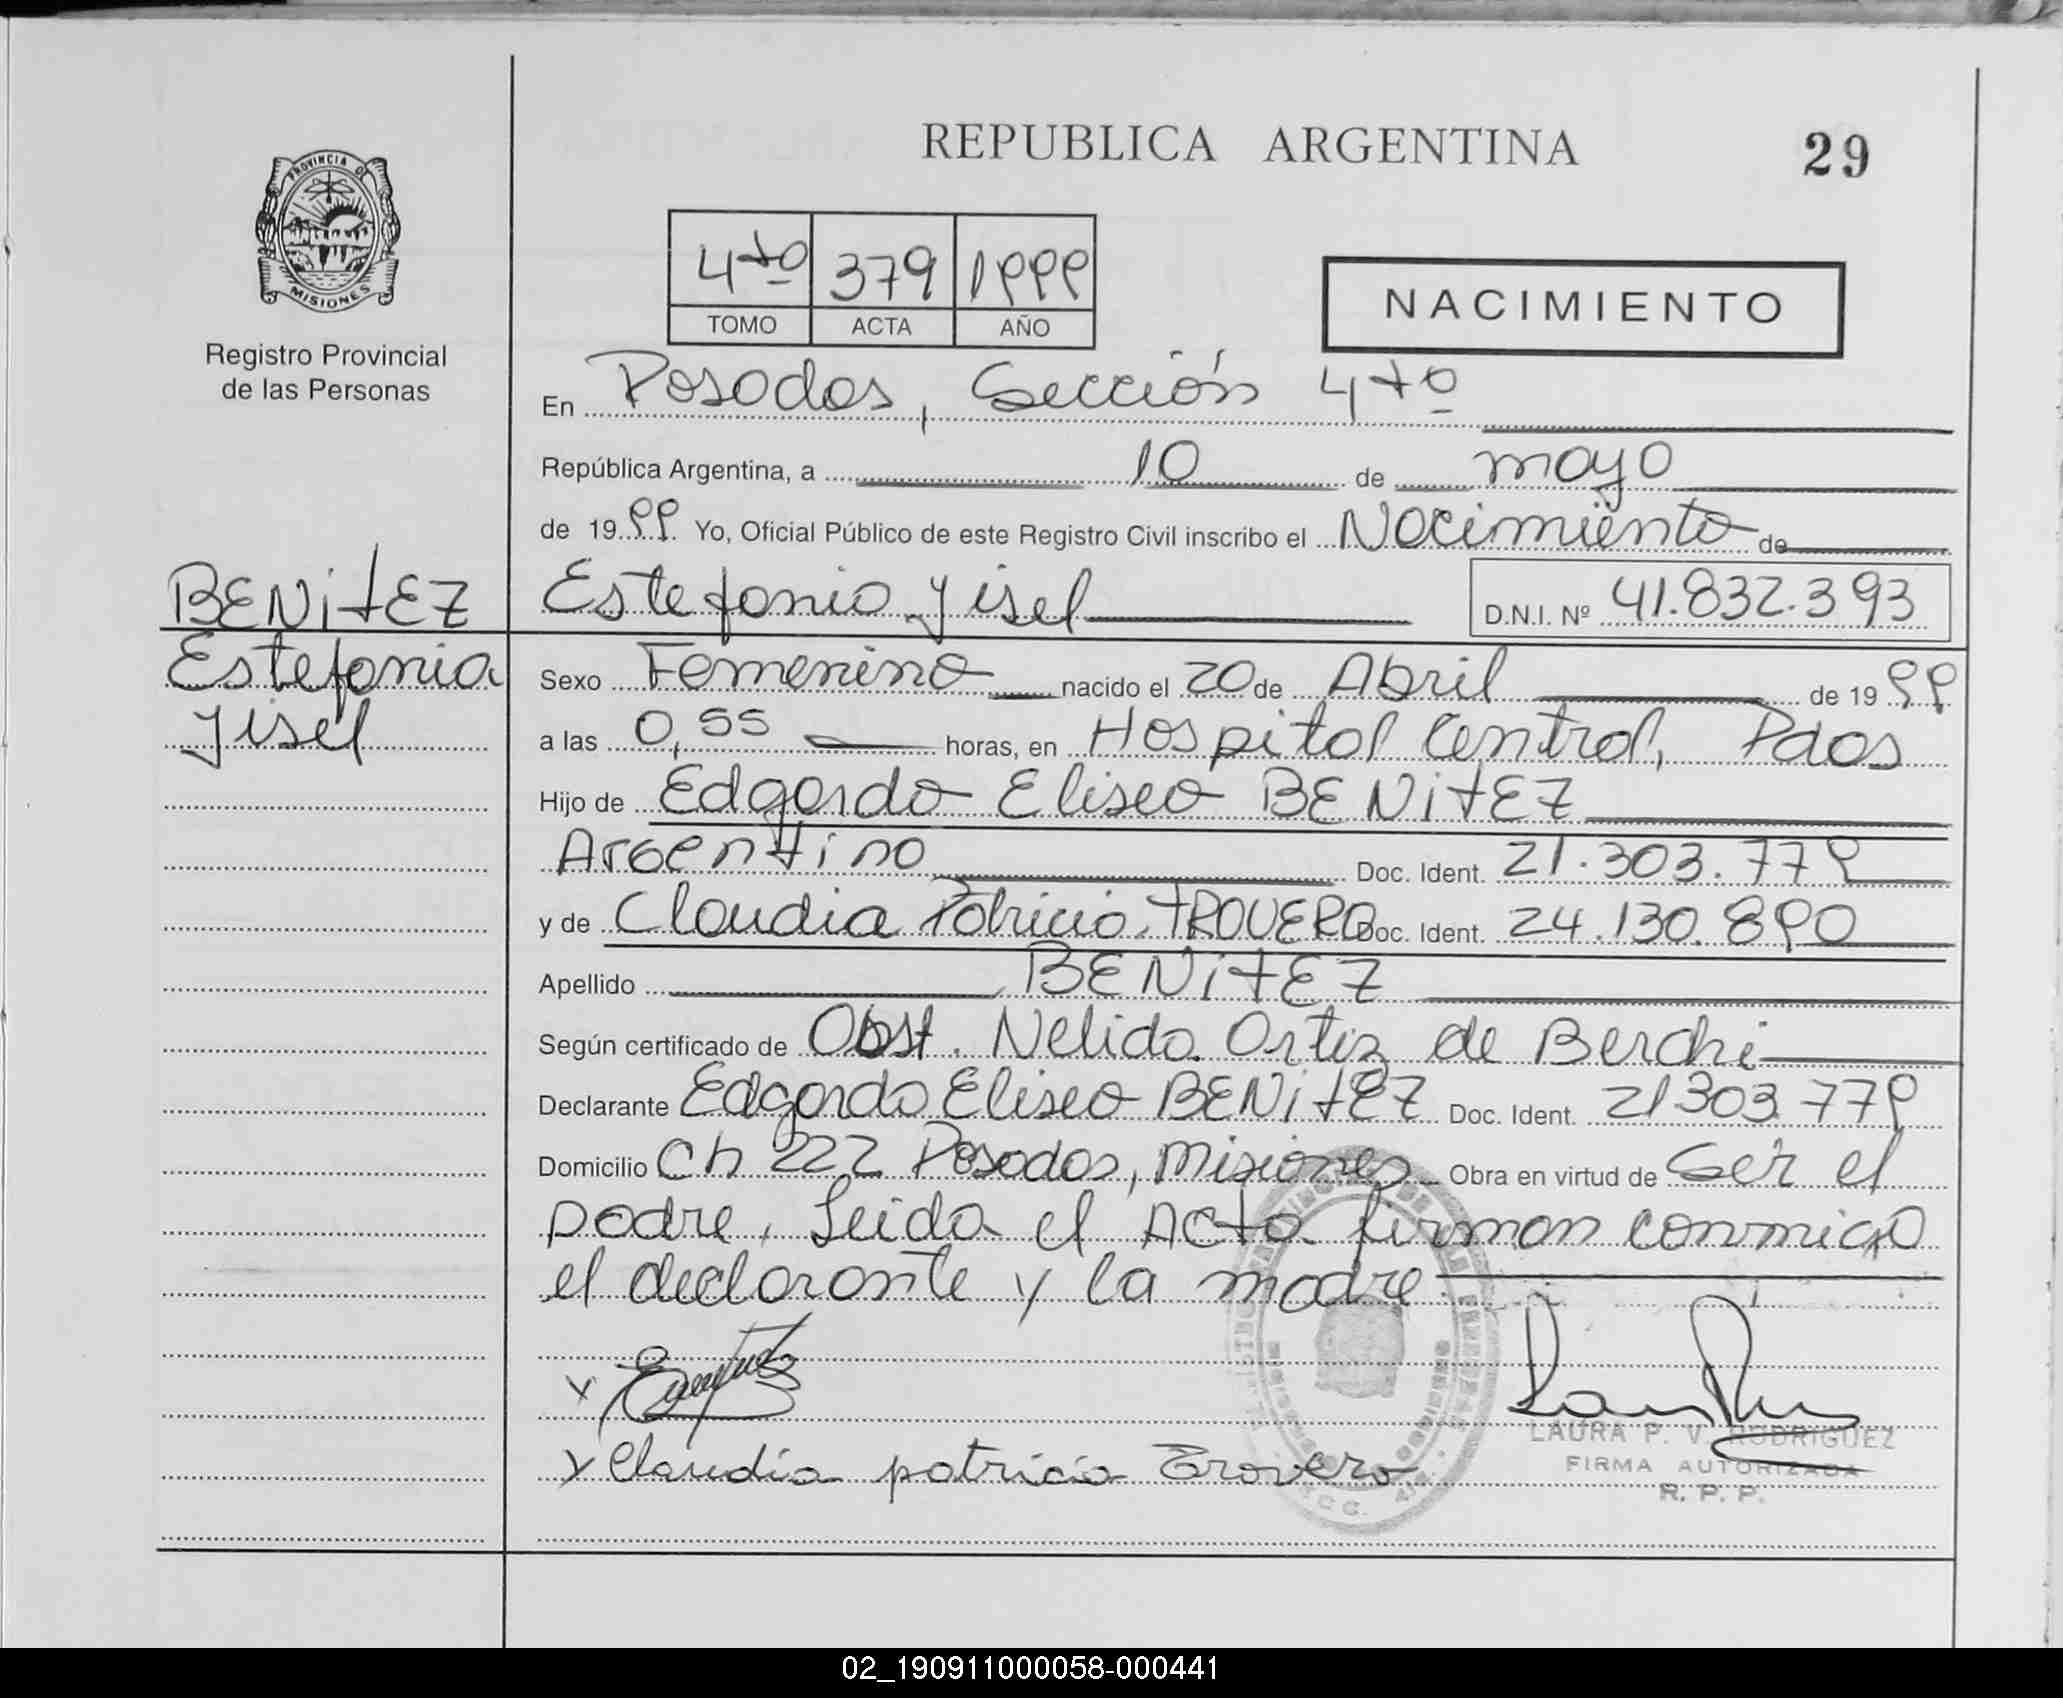 REPUBLICA ARGENTINA
29
PROVINCIA DE
MISIONES
Registro Provincial
de las Personas
4to 379 1999
TOMO ACTA AÑO
NACIMIENTO
En Posadas, Sección 4ta
República Argentina, a 10 de mayo
de 1999 Yo, Oficial Público de este Registro Civil inscribo el Nacimiento de
BENITEZ
Estefania Yisel
D.N.I. Nº 41.832.393
Estefania
Yisel
Sexo Femenino nacido el 20 de Abril de 1999
a las 0,55 horas, en Hospital Central, Pdas
Hijo de Edgardo Eliseo BENITEZ
Argentino Doc. Ident. 21.303.779
y de Claudia Patricia TROVERO Doc. Ident. 24.130.890
Apellido BENITEZ
Según certificado de Obst. Nelida Ortiz de Berchi
Declarante Edgardo Eliseo BENITEZ Doc. Ident. 21303.779
Domicilio Ch 222 Posadas, Misiones Obra en virtud de Ser el
padre, Leida el Acta firman conmigo
el declarante y la madre
Claudia patricia Trovero
LAURA P. V. RODRIGUEZ
FIRMA AUTORIZADA
R. P. P.
02_190911000058-000441